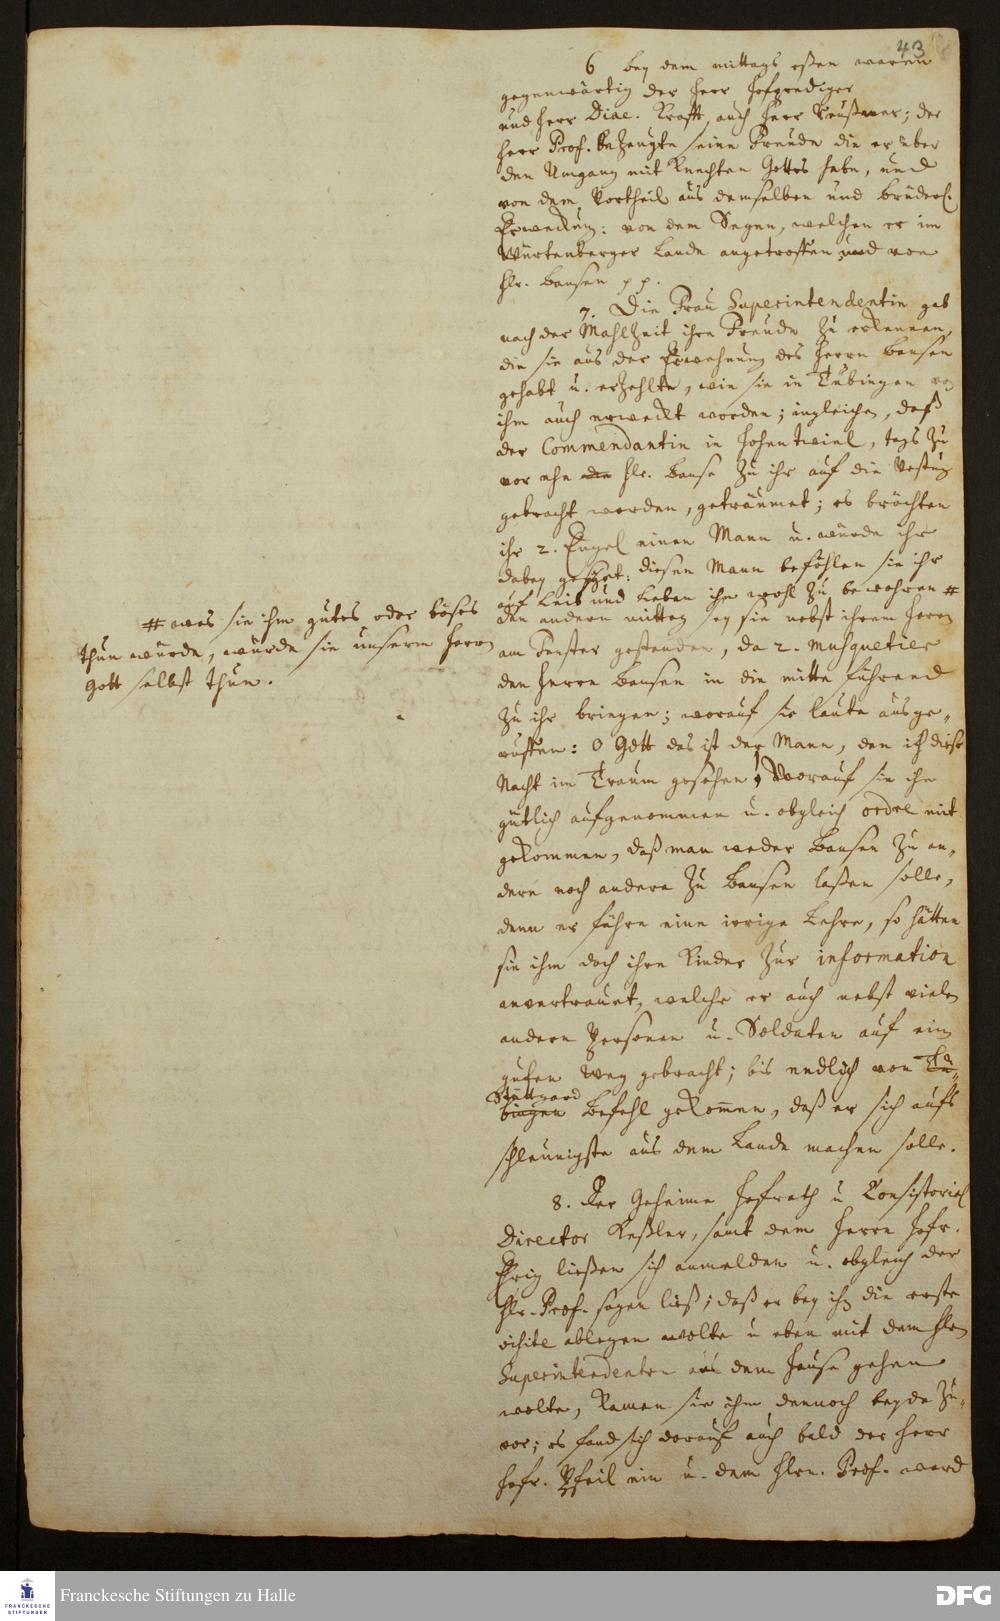 43
6 bey dem mittags eßen waren
gegenwärtig der Herr Hofprediger
und Herr Diac. Krafft, auch Herr Reußner; der
Herr Prof. bezeugte seine Freude die er über
den Umgang mit Knechten Gottes habe, und
von dem Vortheil aus demselben und brüderl.
Erweckung: von dem Segen, welchen er im
Würtenberger Lande angetroffen und von
Hr. Bansen pp.
7. Die Frau Superintendentin gab
nach der Mahlzeit ihre Freude zu erkennen,
die sie aus der Erwehnung des Herrn Bansen
gehabt u. erzehlte, wie sie in Tübingen von
ihm auch erweckt worden; ingleichen, daß
der Commendantin in Hohentwiel, tags zu
vor ehe Hr. Banse zu ihr auf die Vestung
gebracht worden, geträumet; es brächten
ihr 2. Engel einen Mann u. würde ihr
dabey gesagt: diesen Mann befohlen sie ihr
auf Leib und Leben ihn wohl zu bewahren #
den andern mittag sey sie nebst ihrem Herrn
# was sie ihm gutes oder böses
thun würde, würde sie unserm Herrn
Gott selbst thun.
am Fenster gestanden, da 2. Musquetier
den Herrn Bansen in die mitte führend
zu ihr bringen; worauf sie laute ausge-
ruffen: O Gott das ist der Mann, den ich diese
Nacht im Traum gesehen! Worauf sie ihn
gütlich aufgenommen u. obgleich ordre mit
gekommen, daß man weder Bansen zu an-
dern noch andere zu Bansen laßen solle,
denn er führe eine irrige Lehre, so hätten
sie ihm doch ihre Kinder zur information
anvertrauet, welche er auch nebst vielen
andern Personen u. Soldaten auf ein
guten Weg gebracht; bis endlich von Tü-
Stuttgard
bingen Befehl gekommen, daß er sich aufs
schleunigste aus dem Lande machen solle.
8. Der Geheime Hofrath u Consistorial
Director Keßler, samt dem Herrn Hofr.
ließen sich anmelden u. obgleich der
Hr. Prof. sagen ließ; daß er bey ihm die erste
visite ablegen wolte u eben mit dem Hrn
Superintendenten aus dem Hause gehen
wolte, kamen sie ihm dennoch beyde zu-
vor; es fand sich darauf auch bald der Herr
Hofr. Pfeil ein u. dem Hrn. Prof. ward
Franckesche Stiftungen zu Halle
FRANCKESCHE
STIFTUNGEN
DFG